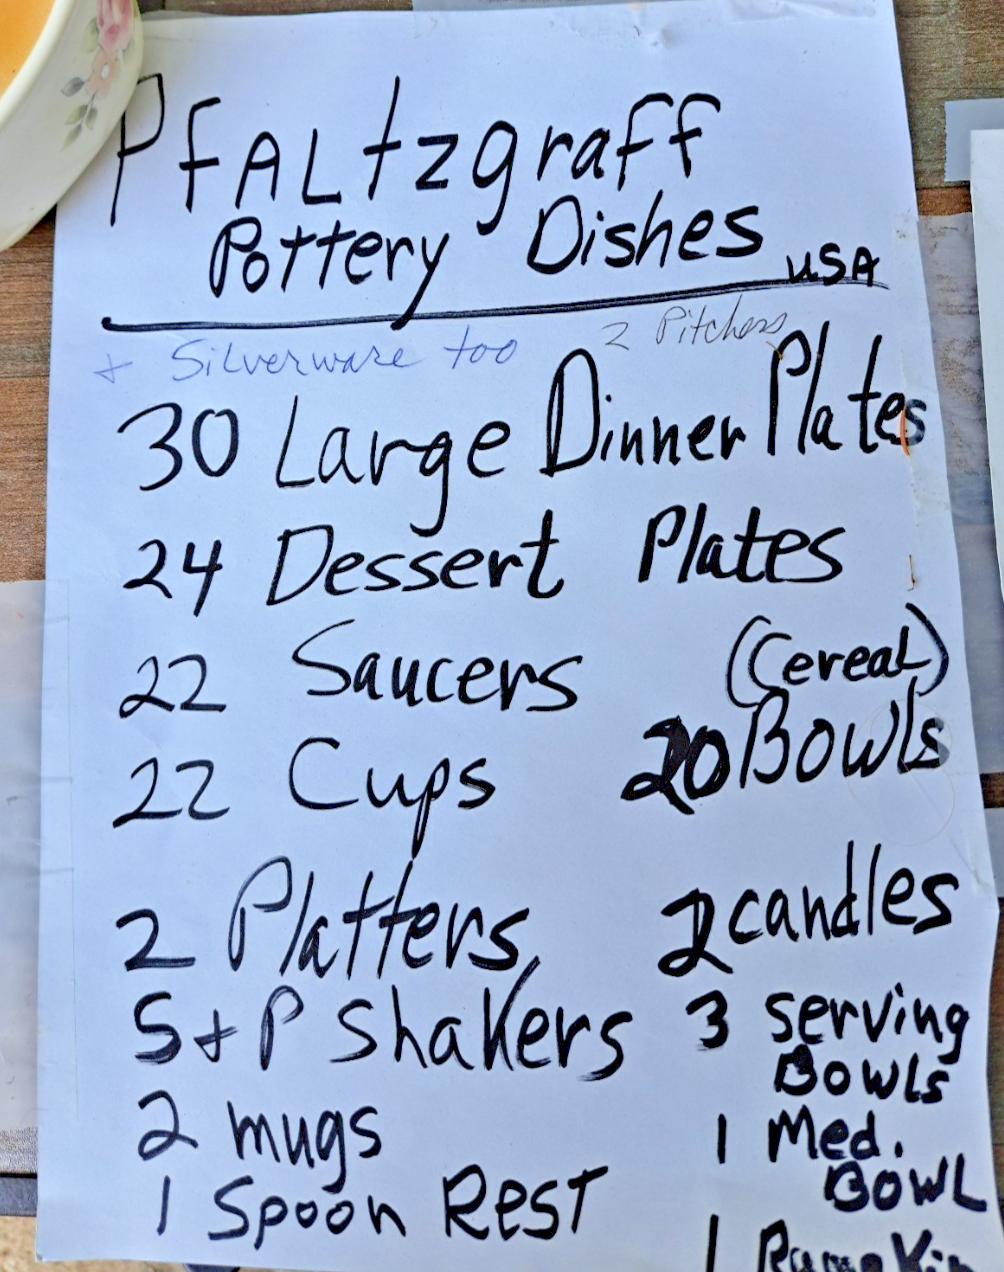 PfALtzgraff
Pottery Dishes USA
+ Silverware too 2 Pitchers
30 Large Dinner Plates
24 Dessert Plates
22 Saucers (Cereal)
22 Cups 20 Bowls
2 Platters, 2 candles
S+P Shakers 3 Serving
Bowls
2 mugs 1 Med.
BOWL
1 Spoon REST
1